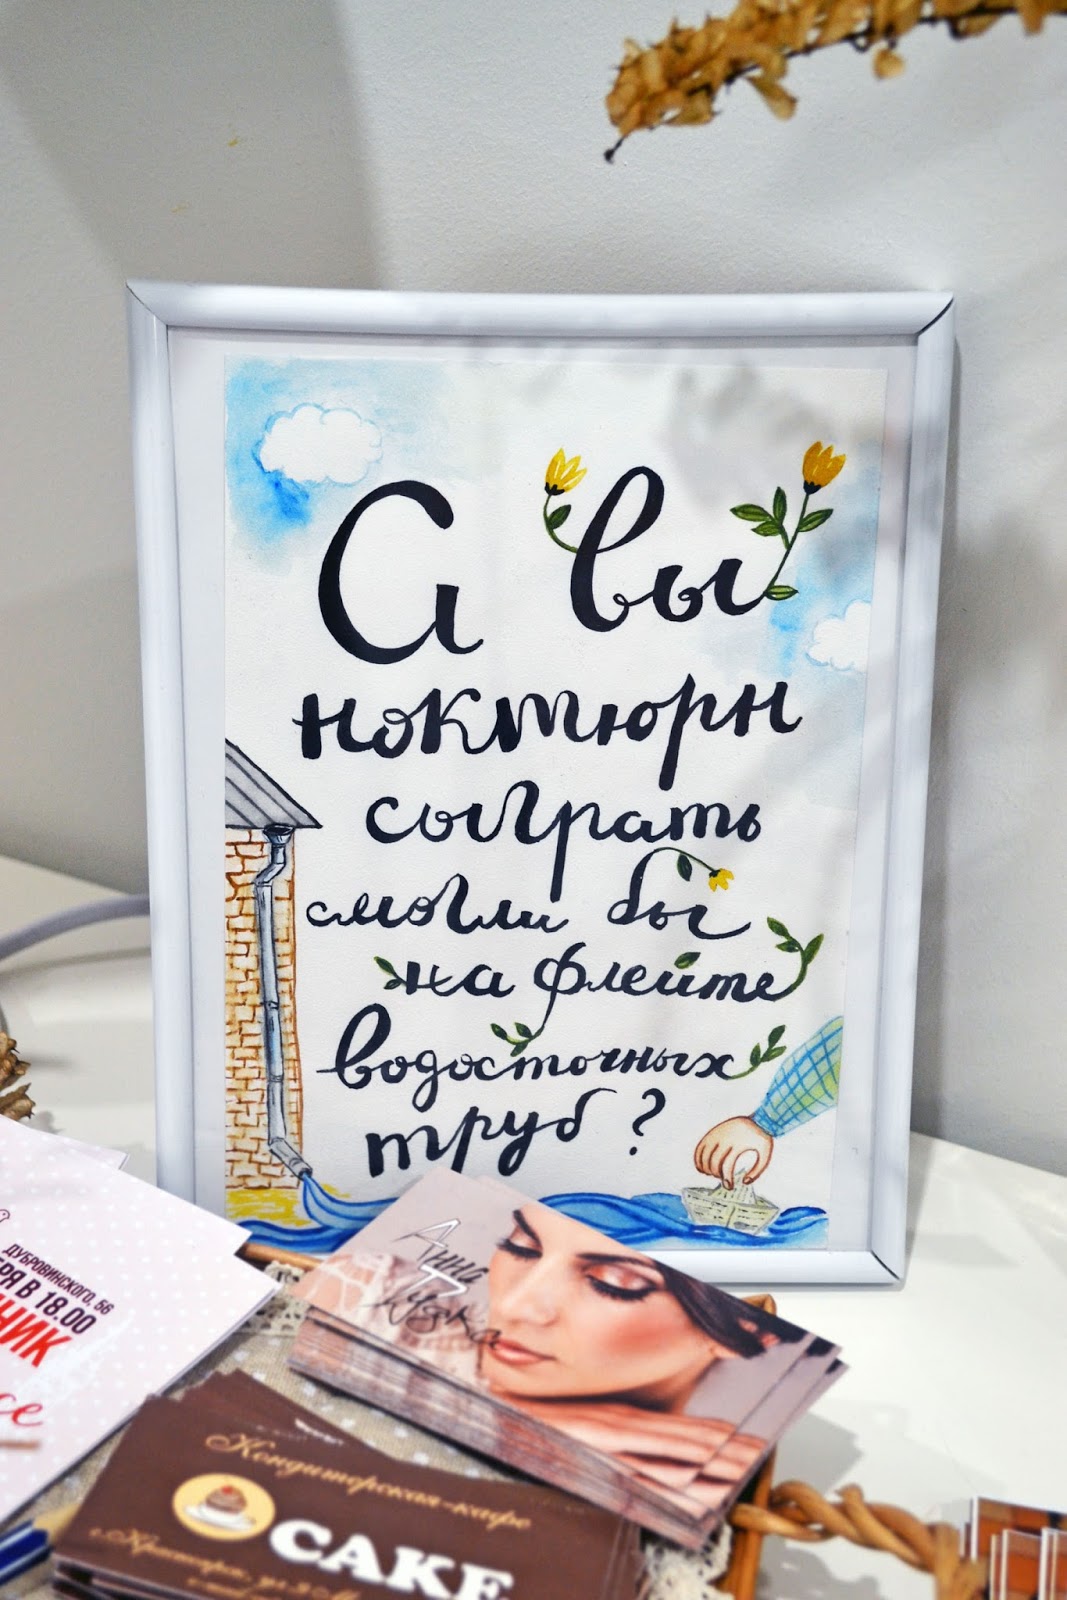 А вы
ноктюрн
сыграть
смогли бы
на флейте
водосточных
труб?
Анна
ДУБРОВИНСКОГО, 56
В 18.00
НИК
Кондитерская-кафе
CAKE